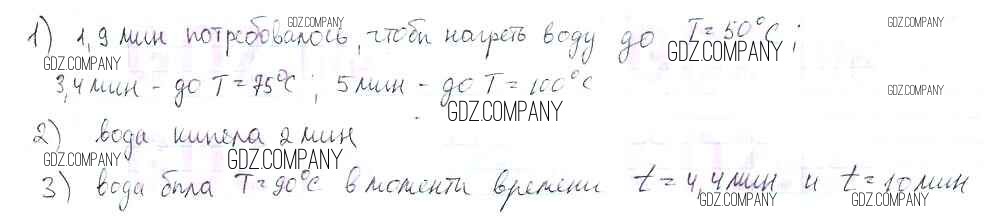 1) 1,9 мин потребовалось, чтобы нагреть воду до T=50°C;
3,4 мин - до T=75°C; 5 мин - до T=100°C
2) вода кипела 2 мин
3) вода была T=90°C в моменты времени t=4,4 мин и t=10 мин
GDZ.COMPANY
GDZ.COMPANY
GDZ.COMPANY
GDZ.COMPANY
GDZ.COMPANY
GDZ.COMPANY
GDZ.COMPANY
GDZ.COMPANY
GDZ.COMPANY
GDZ.COMPANY
GDZ.COMPANY